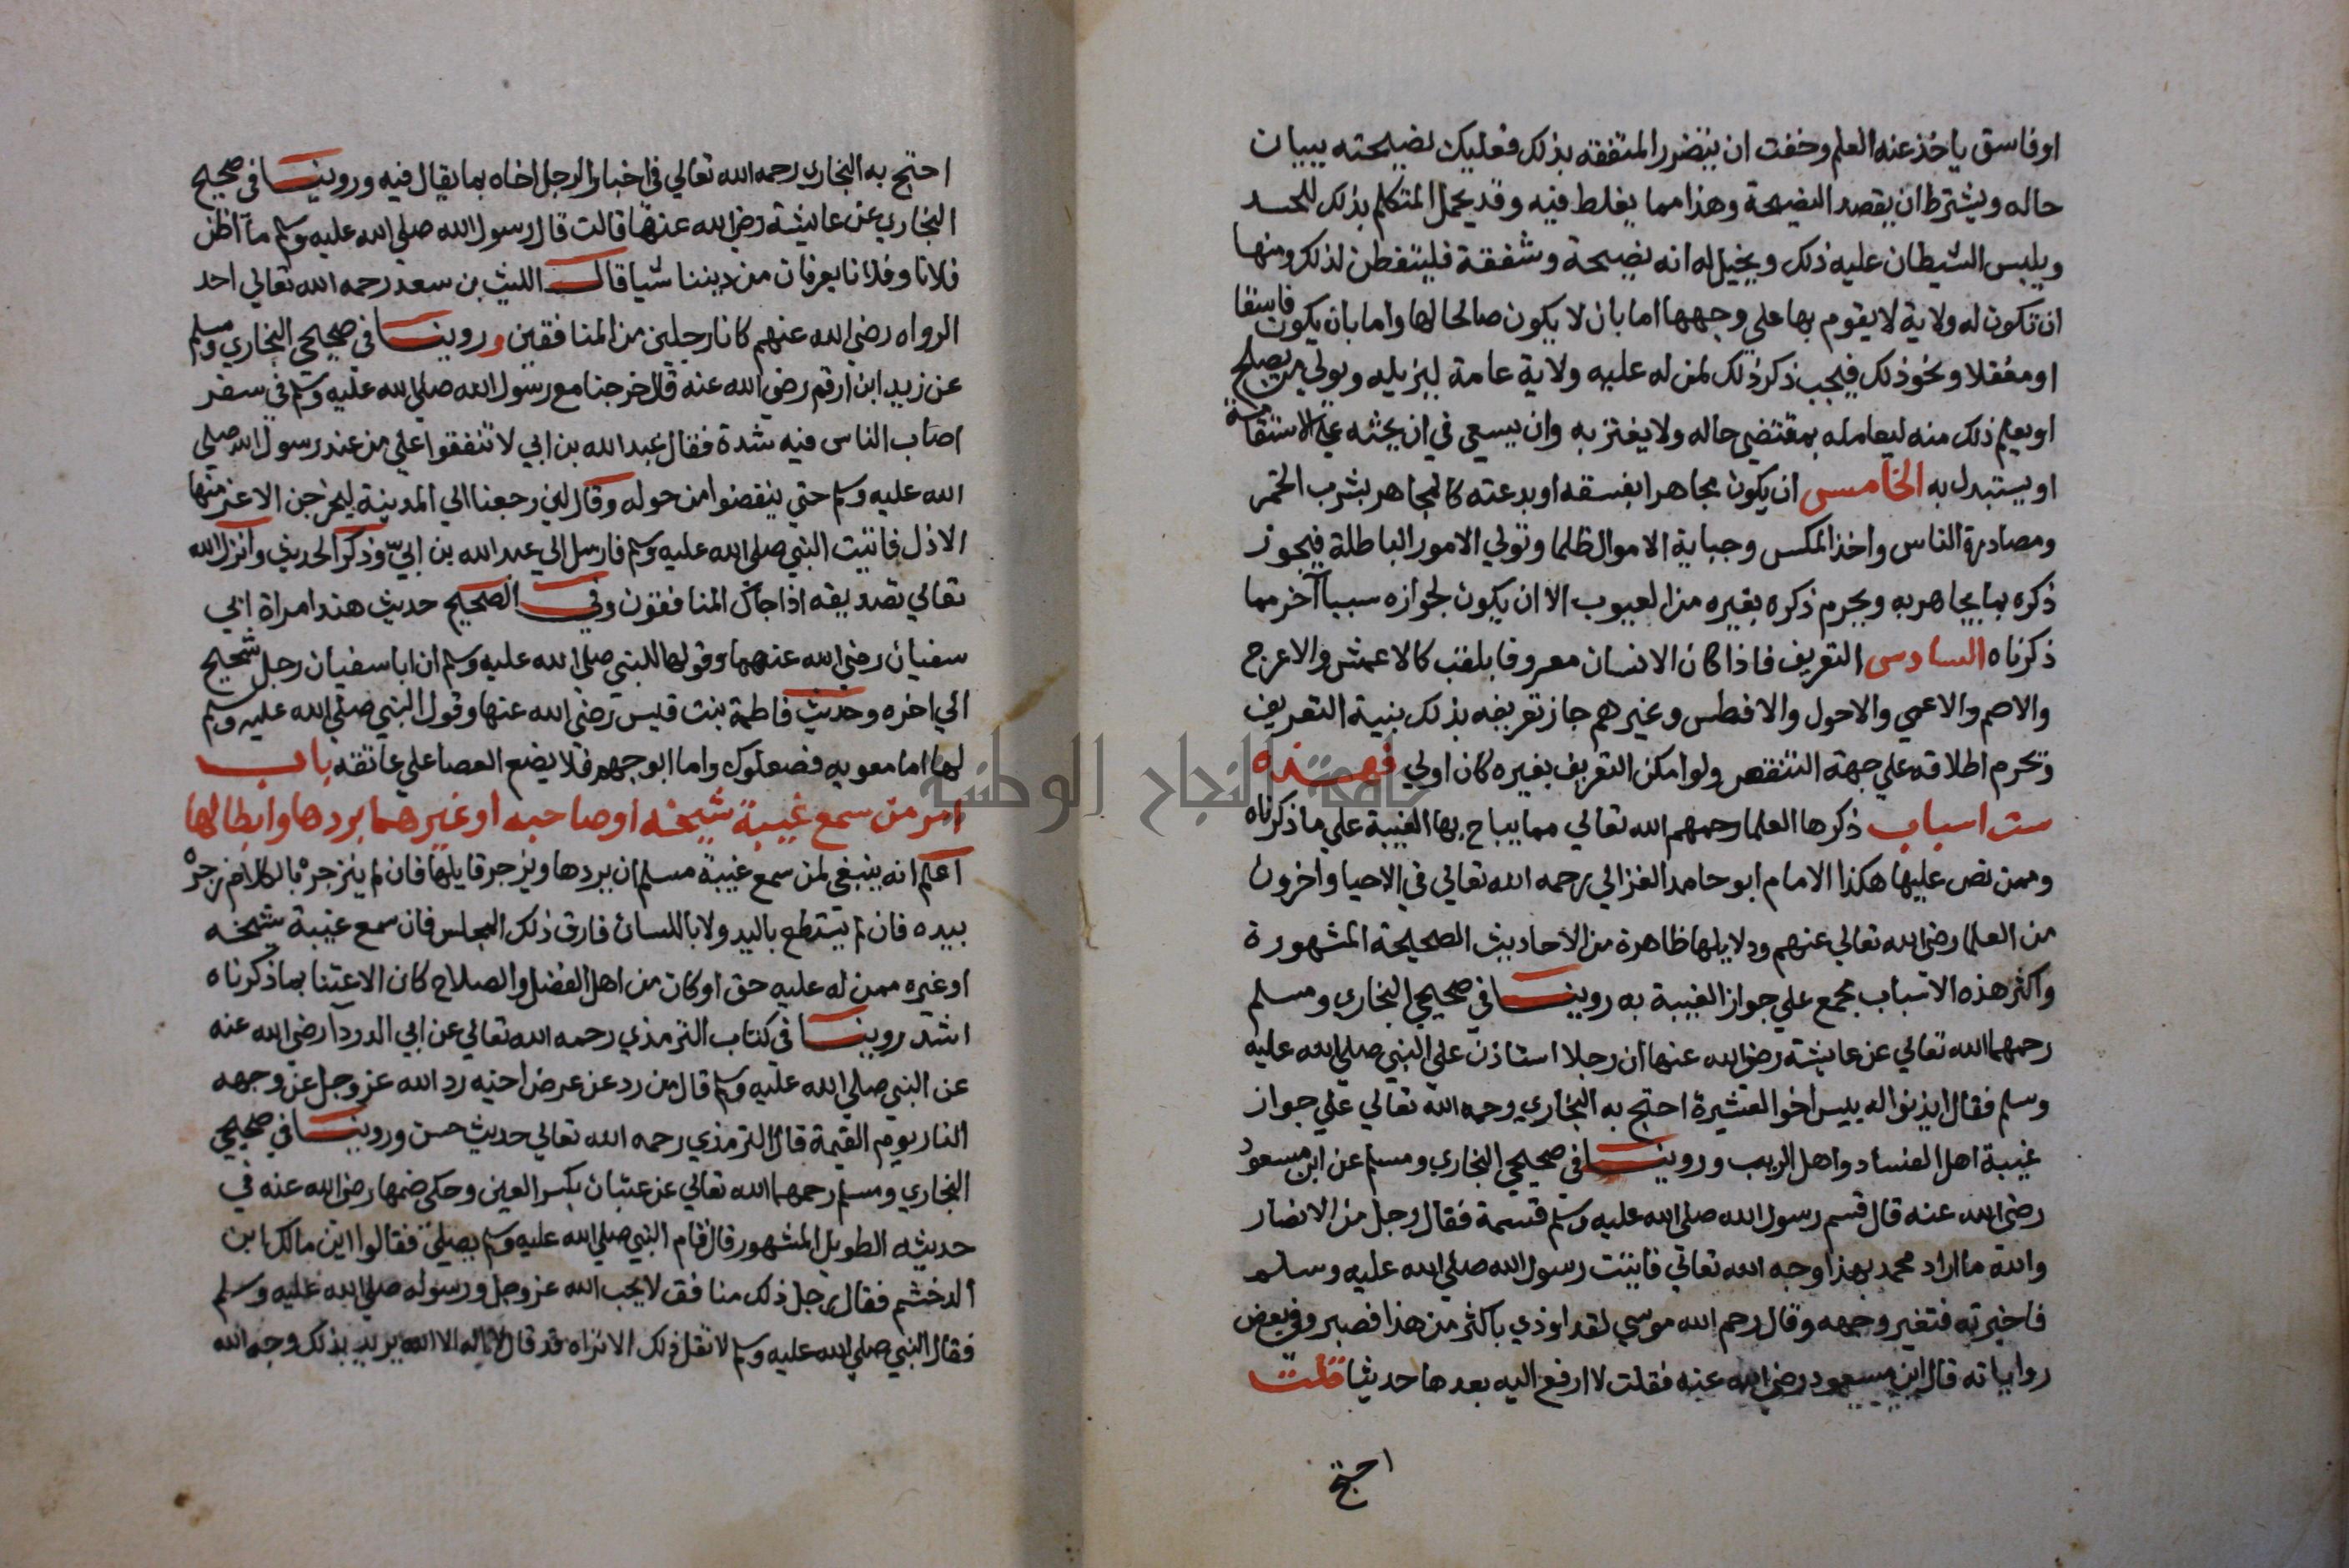 او فاسق ياخذ عنه العلم وخفت ان يتضرر المتفقه بذلك فعليك نصيحته ببيان
حاله ويشترط ان يقصد النصيحة وهذا مما يغلط فيه وقد يحمل المتكلم بذلك للحسد
ويلبس الشيطان عليه ذلك ويخيل له انه نصيحة وشفقة فليتفطن لذلك ومنها
ان تكون له ولاية لا يقوم بها علي وجهها اما بان لا يكون صالحا لها واما بان يكون فاسقا
او مغفلا ونحو ذلك فيجب ذكر ذلك لمن له عليه ولاية عامة ليزيله ويولي من يصلح
او يعلم ذلك منه ليعامله بمقتضي حاله ولا يغتر به وان يسعي في ان يحثه علي الاستقامة
او يستبدل به الخامس ان يكون مجاهرا بفسقه او بدعته كالمجاهر بشرب الخمر
ومصادرة الناس واخذ المكس وجباية الاموال ظلما وتولي الامور الباطلة فيجوز
ذكره بما يجاهر به ويحرم ذكره بغيره من العيوب الا ان يكون لجوازه سببا آخر مما
ذكرناه السادس التعريف فاذا كان الانسان معروفا بلقب كالاعمش والاعرج
والاصم والاعمي والاحول والافطس وغيرهم جاز تعريفه بذلك بنية التعريف
وتحرم اطلاقه علي جهة التنقص ولو امكن التعريف بغيره كان اولي فهذه
ست اسباب ذكرها العلما رحمهم الله تعالي مما يباح بها الغيبة علي ما ذكرناه
وممن نص عليها هكذا الامام ابو حامد الغزالي رحمه الله تعالي في الاحيا واخرون
من العلما رضي الله تعالي عنهم ودلايلها ظاهرة من الاحاديث الصحيحة المشهورة
واكثر هذه الاسباب مجمع علي جواز الغيبة به روينا في صحيحي البخاري ومسلم
رحمهما الله تعالي عن عايشة رضي الله عنها ان رجلا استاذن علي النبي صلي الله عليه
وسلم فقال ايذنوا له بيس اخو العشيرة احتج به البخاري رحمه الله تعالي علي جواز
غيبة اهل الفساد واهل الريب وروينا في صحيحي البخاري ومسلم عن ابن مسعود
رضي الله عنه قال قسم رسول الله صلي الله عليه وسلم قسمة فقال رجل من الانصار
والله ما اراد محمد بهذا وجه الله تعالي فاتيت رسول الله صلي الله عليه وسلم
فاخبرته فتغير وجهه وقال رحم الله موسي لقد اوذي باكثر من هذا فصبر وفي بعض
رواياته قال ابن مسعود رضي الله عنه فقلت لا ارفع اليه بعدها حديثا قلت
احتج
احتج به البخاري رحمه الله تعالي في اخبار الرجل اخاه بما يقال فيه وروينا في صحيح
البخاري عن عايشة رضي الله عنها قالت قال رسول الله صلي الله عليه وسلم ما اظن
فلانا وفلانا يعرفان من ديننا شيا قال الليث بن سعد رحمه الله تعالي احد
الرواه رضي الله عنهم كانا رجلين من المنافقين وروينا في صحيحي البخاري ومسلم
عن زيد ابن ارقم رضي الله عنه قال خرجنا مع رسول الله صلي الله عليه وسلم في سفر
اصاب الناس فيه شدة فقال عبد الله بن ابي لا تنفقوا علي من عند رسول الله صلي
الله عليه وسلم حتي ينفضوا من حوله وقال لين رجعنا الي المدينة ليخرجن الاعز منها
الاذل فاتيت النبي صلي الله عليه وسلم فارسل الي عبد الله بن ابيّ وذكر الحديث وانزل الله
تعالي تصديقه اذا جاك المنافقون وفي الصحيح حديث هند امراة ابي
سفيان رضي الله عنهما وقولها للنبي صلي الله عليه وسلم ان ابا سفيان رجل شحيح
الي اخره وحديث فاطمة بنت قيس رضي الله عنها وقول النبي صلي الله عليه وسلم
لها اما معويه فصعلوك واما ابو جهم فلا يضع العصا علي عاتقه باب
امر من سمع غيبة شيخه او صاحبه او غيرهما بردها وابطالها
اعلم انه ينبغي لمن سمع غيبة مسلم ان يردها ويزجر قايلها فان لم ينزجر بالكلام زجره
بيده فان لم يستطع باليد ولا باللسان فارق ذلك المجلس فان سمع غيبة شيخه
او غيره ممن له عليه حق او كان من اهل الفضل والصلاح كان الاعتنا بما ذكرناه
اشد روينا في كتاب الترمذي رحمه الله تعالي عن ابي الدردآ رضي الله عنه
عن النبي صلي الله عليه وسلم قال من رد عن عرض اخيه رد الله عز وجل عن وجهه
النار يوم القيمة قال الترمذي رحمه الله تعالي حديث حسن وروينا في صحيحي
البخاري ومسلم رحمهما الله تعالي عن عتبان بكسر العين وحكي ضمها رضي الله عنه في
حديثه الطويل المشهور قال قام النبي صلي الله عليه وسلم يصلي فقالوا اين مالك ابن
الدخشم فقال رجل ذلك منافق لا يحب الله عز وجل ورسوله صلي الله عليه وسلم
فقال النبي صلي الله عليه وسلم لا تقل ذلك الا تراه قد قال لا اله الا الله يريد بذلك وجه الله
جامعة النجاح الوطنية